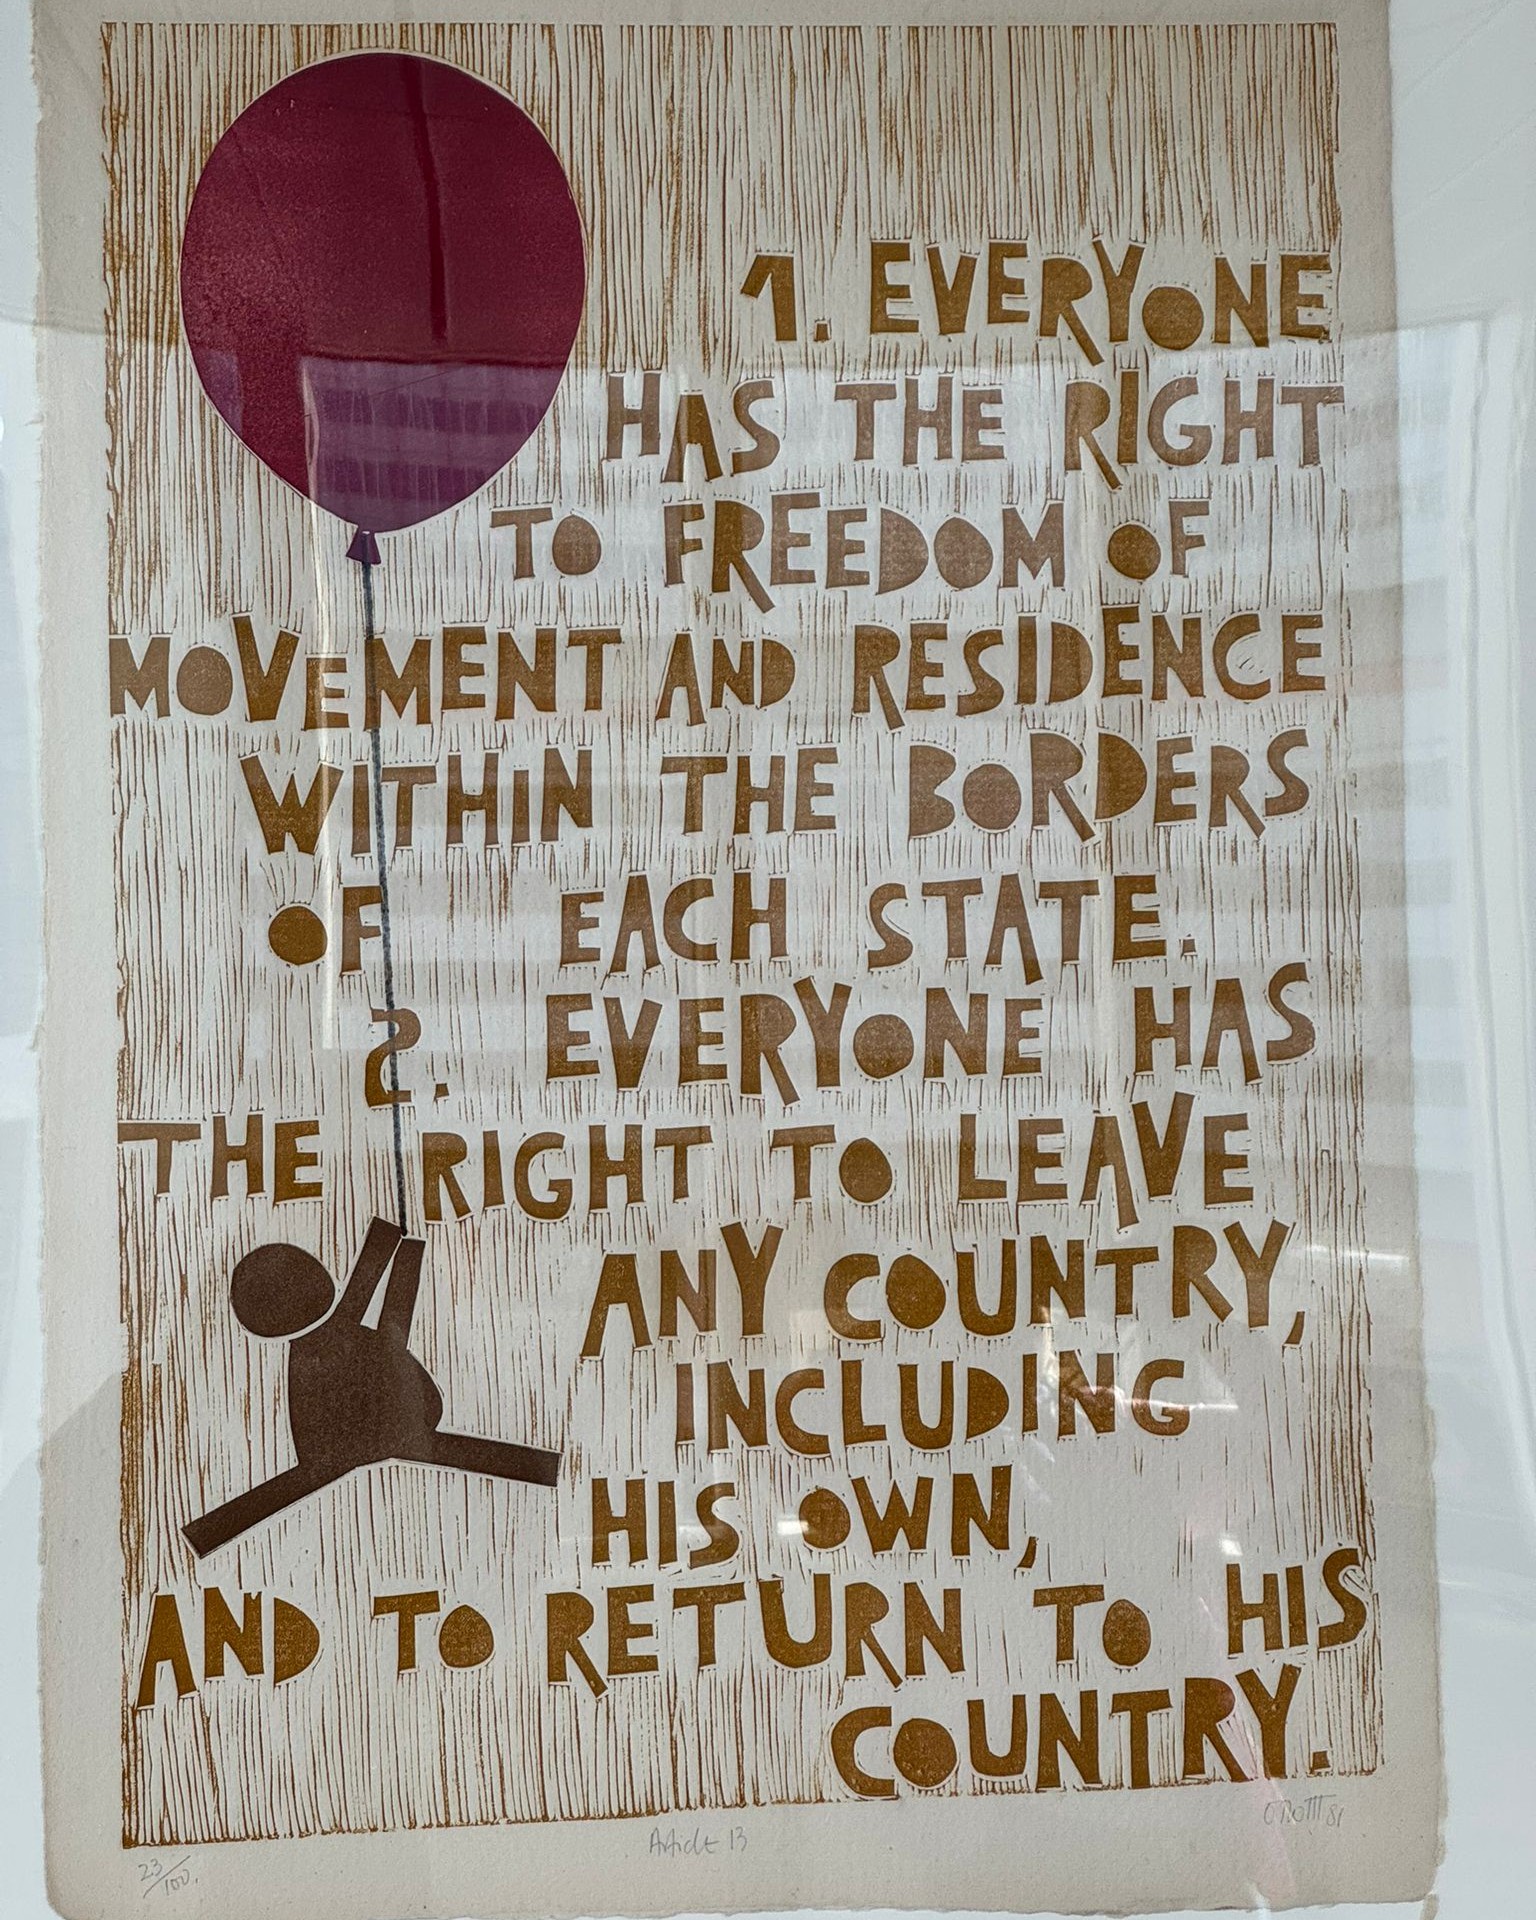 1. EVERYONE
HAS THE RIGHT
TO FREEDOM OF
MOVEMENT AND RESIDENCE
WITHIN THE BORDERS
OF EACH STATE.
2. EVERYONE HAS
THE RIGHT TO LEAVE
ANY COUNTRY,
INCLUDING
HIS OWN,
AND TO RETURN TO HIS
COUNTRY.
23/100. Article 13